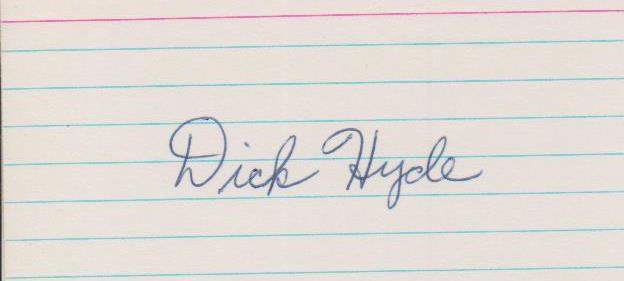 Dick Hyde